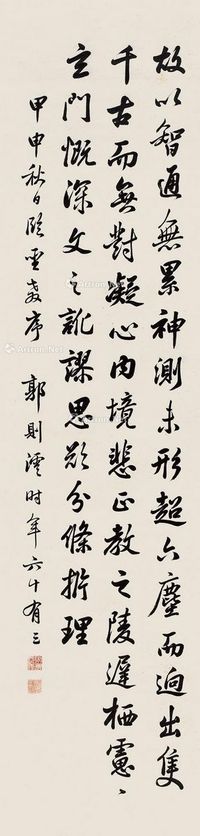 故以智通無累神測未形超六塵而迥出隻
千古而無對凝心內境悲正教之陵遲栖慮
玄門慨深文之訛謬思欲分條析理
甲申秋日臨聖教序 郭則澐時年六十有三